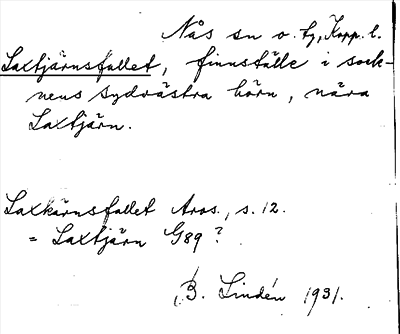 Nås sn o. tg, Kopp. l.
Laxtjärnsfallet, finnställe i sock-
nens sydvästra hörn, nära
Laxtjärn.
Laxkärnsfallet Aros., s. 12.
= Laxtjärn G89?
B. Lindén 1931.